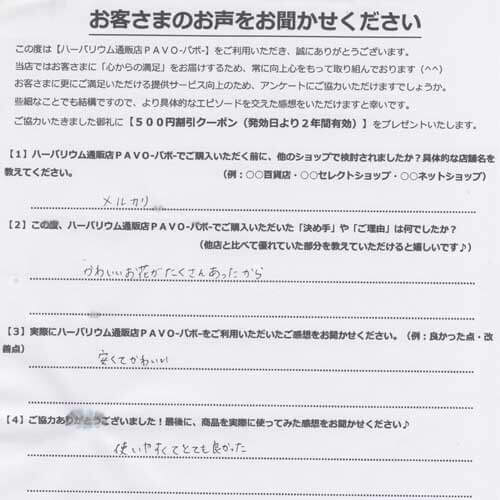 お客さまのお声をお聞かせください
この度は【ハーバリウム通販店PAVO-パボ-】をご利用いただき、誠にありがとうございます。
当店ではお客さまに「心からの満足」をお届けするため、常に向上心をもって取り組んでおります(^^)
お客さまに更にご満足いただける提供サービス向上のため、アンケートにご協力いただけますでしょうか。
些細なことでも結構ですので、より具体的なエピソードを交えた感想をいただけますと幸いです。
ご協力いたきました御礼に【500円割引クーポン（発効日より2年間有効）】をプレゼントいたします。
【1】ハーバリウム通販店PAVO-パボ-でご購入いただく前に、他のショップで検討されましたか？具体的な店舗名を
教えてください。 （例：○○百貨店・○○セレクトショップ・○○ネットショップ）
メルカリ
【2】この度、ハーバリウム通販店PAVO-パボ-でご購入いただいた「決め手」や「ご理由」は何でしたか？
（他店と比べて優れていた部分を教えていただけると嬉しいです♪）
かわいいお花がたくさんあったから
【3】実際にハーバリウム通販店PAVO-パボ-をご利用いただいたご感想をお聞かせください。（例：良かった点・改
善点）
安くてかわいい
【4】ご協力ありがとうございました！最後に、商品を実際に使ってみた感想をお聞かせください♪
使いやすくてとても良かった